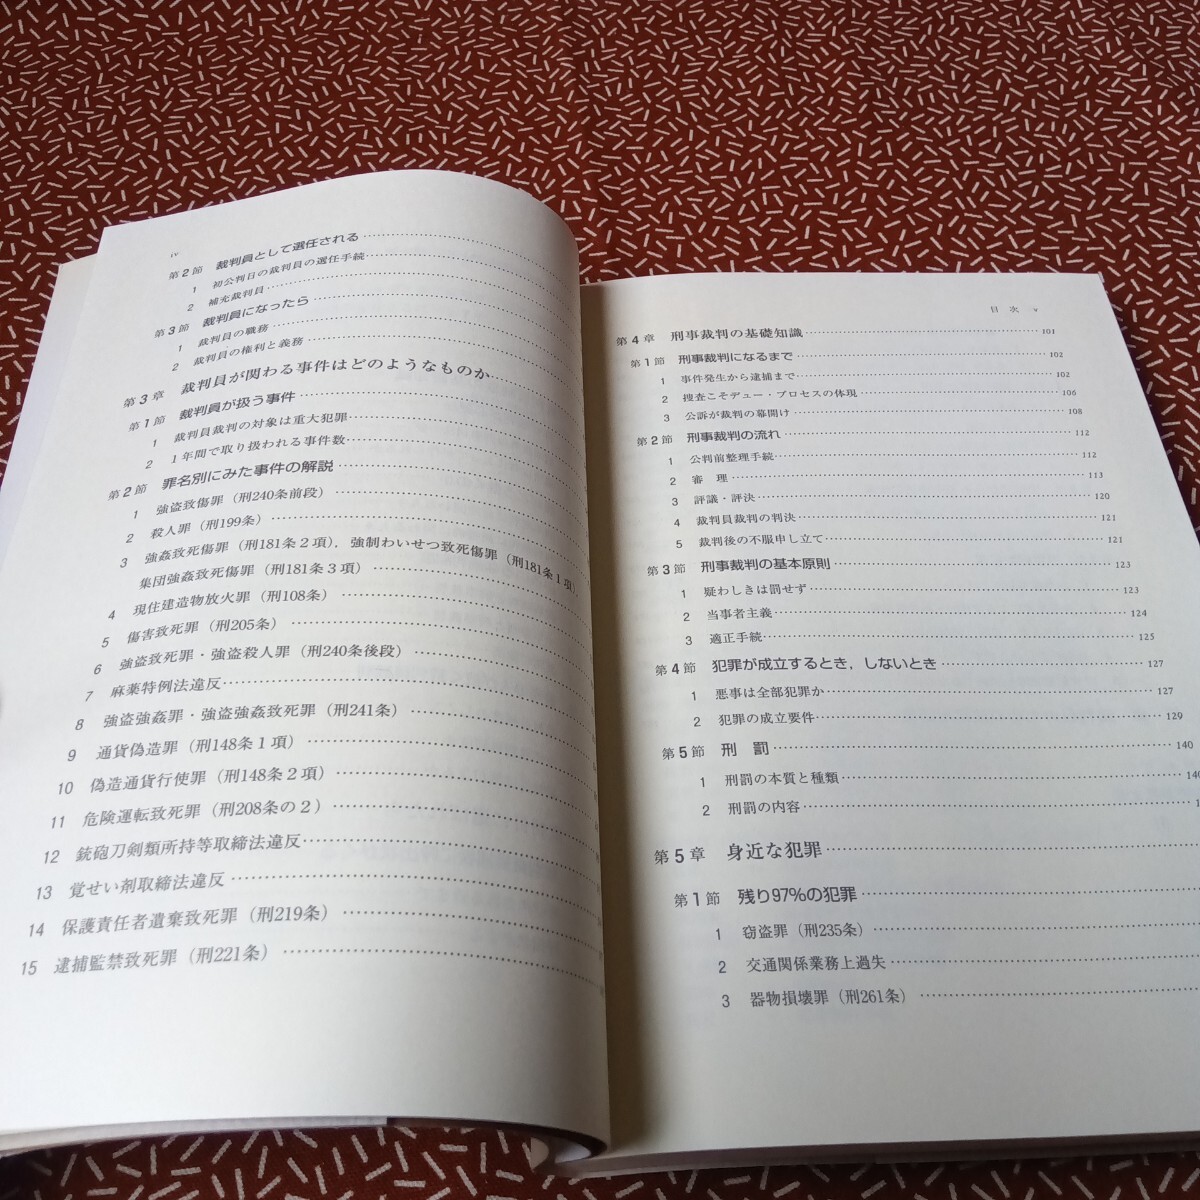 iv
第2節 裁判員として選任される
1 初公判日の裁判員の選任手続
2 補充裁判員
第3節 裁判員になったら
1 裁判員の職務
2 裁判員の権利と義務
第3章 裁判員が関わる事件はどのようなものか
第1節 裁判員が扱う事件
1 裁判員裁判の対象は重大犯罪
2 1年間で取り扱われる事件数
第2節 罪名別にみた事件の解説
1 強盗致傷罪（刑240条前段）
2 殺人罪（刑199条）
3 強姦致死傷罪（刑181条2項），強制わいせつ致死傷罪（刑181条1項）
集団強姦致死傷罪（刑181条3項）
4 現住建造物放火罪（刑108条）
5 傷害致死罪（刑205条）
6 強盗致死罪・強盗殺人罪（刑240条後段）
7 麻薬特例法違反
8 強盗強姦罪・強盗強姦致死罪（刑241条）
9 通貨偽造罪（刑148条1項）
10 偽造通貨行使罪（刑148条2項）
11 危険運転致死罪（刑208条の2）
12 銃砲刀剣類所持等取締法違反
13 覚せい剤取締法違反
14 保護責任者遺棄致死罪（刑219条）
15 逮捕監禁致死罪（刑221条）
目次 v
第4章 刑事裁判の基礎知識 101
第1節 刑事裁判になるまで 102
1 事件発生から逮捕まで 102
2 捜査こそデュー・プロセスの体現 106
3 公訴が裁判の幕開け 108
第2節 刑事裁判の流れ 112
1 公判前整理手続 112
2 審理 113
3 評議・評決 120
4 裁判員裁判の判決 121
5 裁判後の不服申し立て 121
第3節 刑事裁判の基本原則 123
1 疑わしきは罰せず 123
2 当事者主義 124
3 適正手続 125
第4節 犯罪が成立するとき，しないとき 127
1 悪事は全部犯罪か 127
2 犯罪の成立要件 129
第5節 刑罰 140
1 刑罰の本質と種類 140
2 刑罰の内容
第5章 身近な犯罪
第1節 残り97%の犯罪
1 窃盗罪（刑235条）
2 交通関係業務上過失
3 器物損壊罪（刑261条）